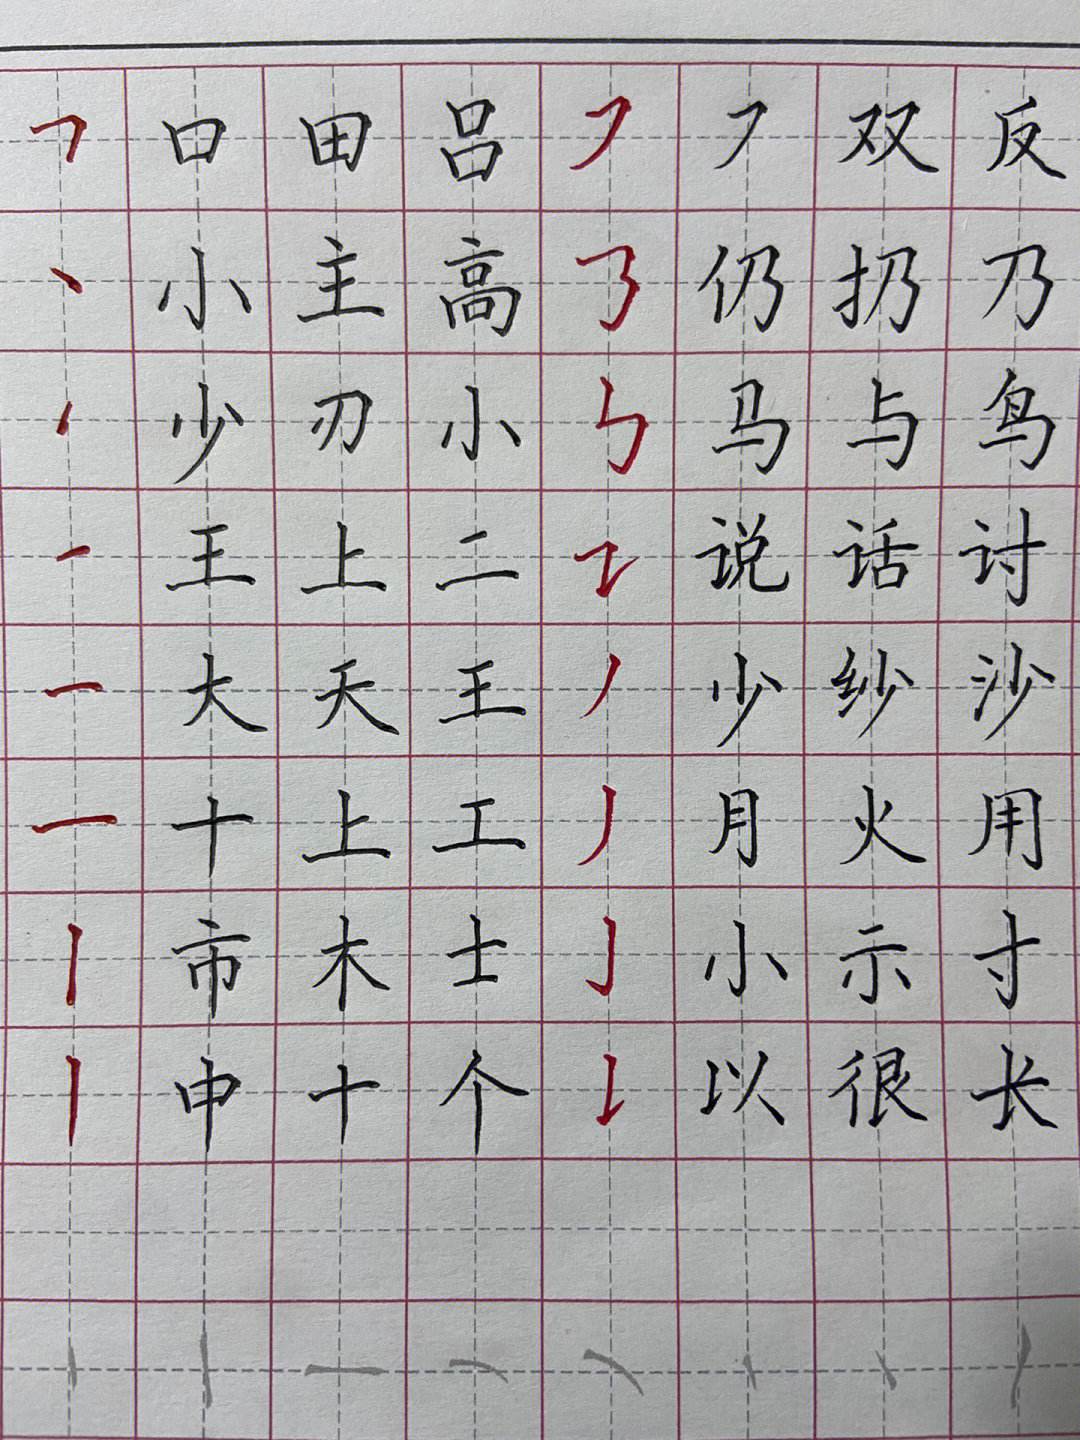 ㇕ 口 田 吕 ㇇ ㇇ 双 反
丶 小 主 高 ㇡ 仍 扔 乃
㇒ 少 刃 小 ㇉ 马 与 鸟
㇐ 王 上 二 ㇊ 说 话 讨
一 大 天 王 丿 少 纱 沙
一 十 上 工 丿 月 火 用
丨 市 木 士 亅 小 示 寸
丨 申 十 个 𠄌 以 很 长